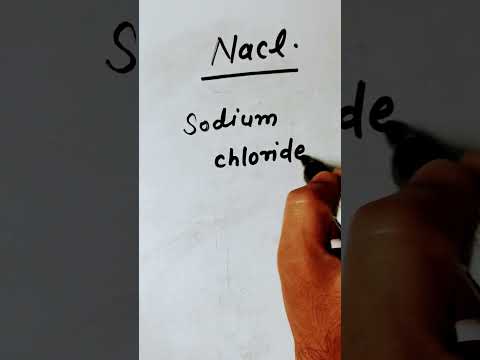 Nacl.
Sodium
chloride